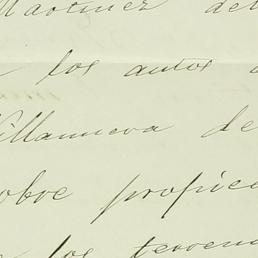 Martinez del
los autos
Villanueva de
sobre propie
los terren